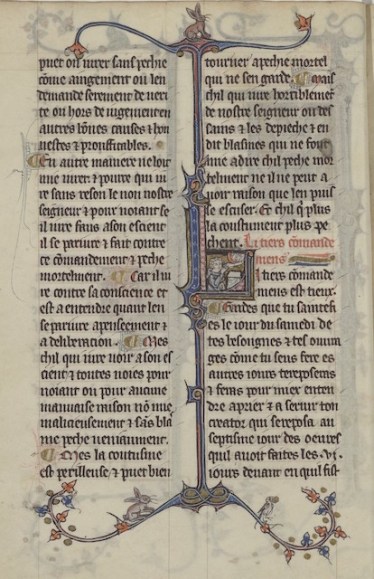 puet on iurer sans pechie
cõme aiugement ou len
demande serement de veri
te ou hors de iugement en
autres bõnes causes & hon
nestes & proufitables.
En autre maniere ne loit
mie iurer & pource qui iu
re sans reson le non nostre
seigneur & pour noiant se
il iure faus a son escient
il se pariure & fait contre
ce cõmandement & peche
mortelment. Car il iu
re contre sa conscience et
est a entendre quant len
se pariure apenseement &
a deliberation. Mes
chil qui iure voir a son es
cient & toutes voies pour
noiant ou pour aucune
mauuaise raison nõ mie
malicieusement & sãs bla
me peche veniaument.
Mes la coustume
est perilleuse & puet bien
tourner a peche mortel
qui ne sen garde. Mais
chil qui iure horriblement
de nostre seigneur ou des
sains & les depieche & en
dit blasmes qui ne font
mie a dire chil peche mor
telment ne il ne peut a
uoir raison que len puist
se escuser. Et chil q̃ plus
la coustument plus pe
chent. Li tiers cõmande
mens
li tiers cõmande
mens est tieux.
Gardes que tu saintefi
es le iour du samedi de
tes besongnes & tes ouura
ges cõme tu seus fere es
autres iours te reposeras
& feras pour miex enten
dre a prier & a seruir ton
creator qui se reposa au
septisme iour des oeures
quil auoit faites les .vi.
iours deuant en quil fist